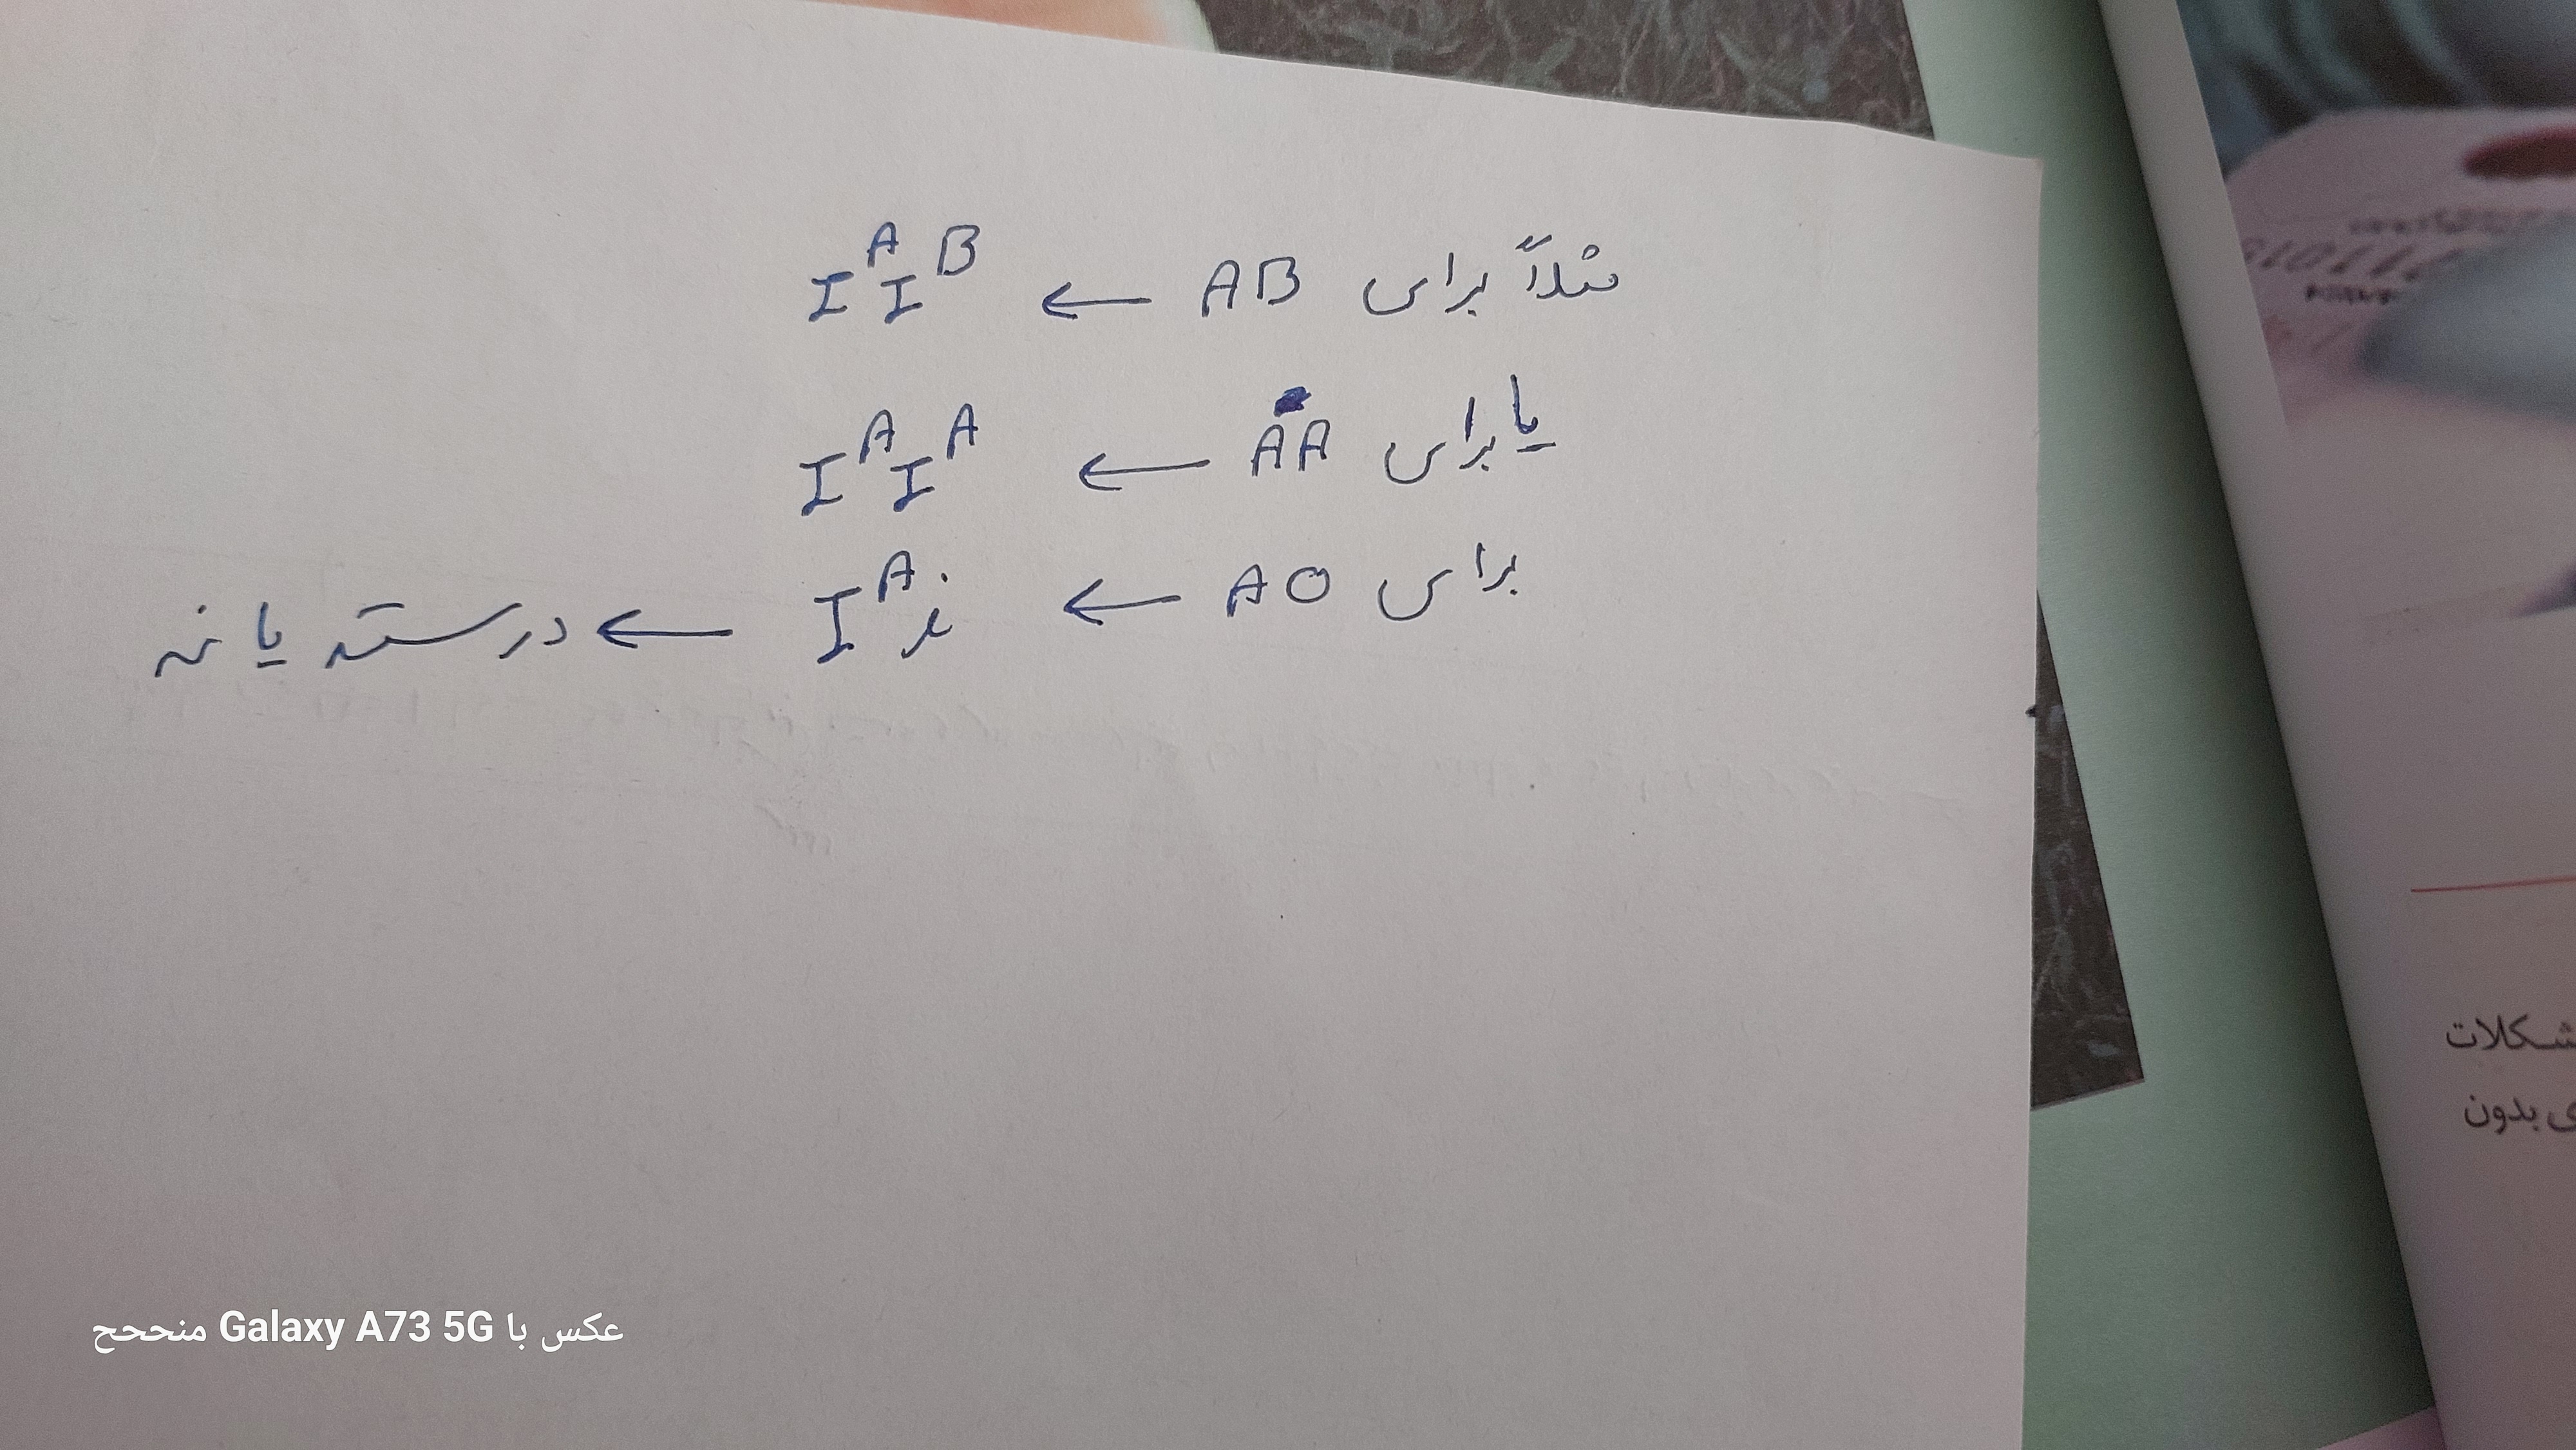 مثلاً برای AB ← I^A I^B
یا برای AA ← I^A I^A
برای AO ← I^A i ← درسته یا نه
شکلات
ی بدون
عکس با Galaxy A73 5G منححح